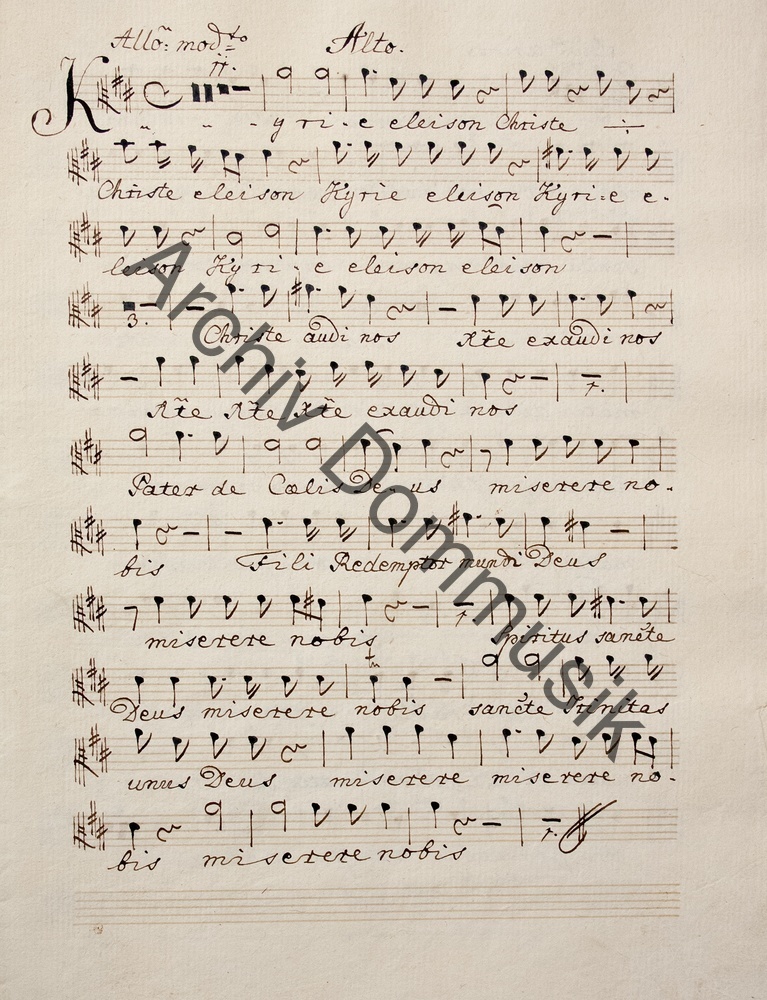 Allo: modto Alto.
11.
Kyri-e eleison Christe
Christe eleison Kyrie eleison Kyri-e e-
leison Kyri-e eleison eleison
3. Christe audi nos Xte exaudi nos
Xte Xte Xte exaudi nos
1.
Pater de Cœlis De-us miserere no-
bis Fili Redemptor mundi Deus
miserere nobis 1. Spiritus sancte
tr
Deus miserere nobis sancte Trinitas
unus Deus miserere miserere no-
bis miserere nobis
1.
Archiv Dommusik